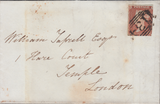 William Tapsell Esqr
1 Hare Court
Temple
London